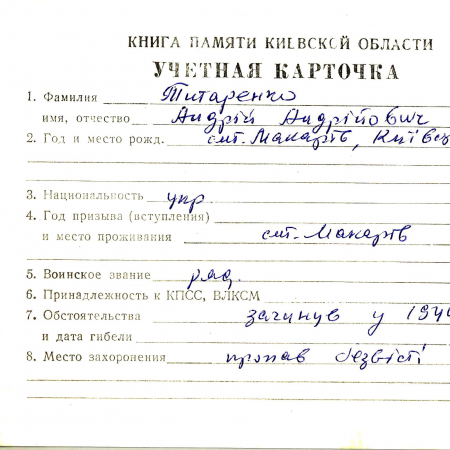 КНИГА ПАМЯТИ КИЕВСКОЙ ОБЛАСТИ
УЧЕТНАЯ КАРТОЧКА
1. Фамилия Титаренко
имя, отчество Андрій Андрійович
2. Год и место рожд. смт. Макарів,
3. Национальность укр.
4. Год призыва (вступления)
и место проживания смт. Макарів
5. Воинское звание ряд.
6. Принадлежность к КПСС, ВЛКСМ
7. Обстоятельства загинув у
и дата гибели
8. Место захоронения пропав безвісті